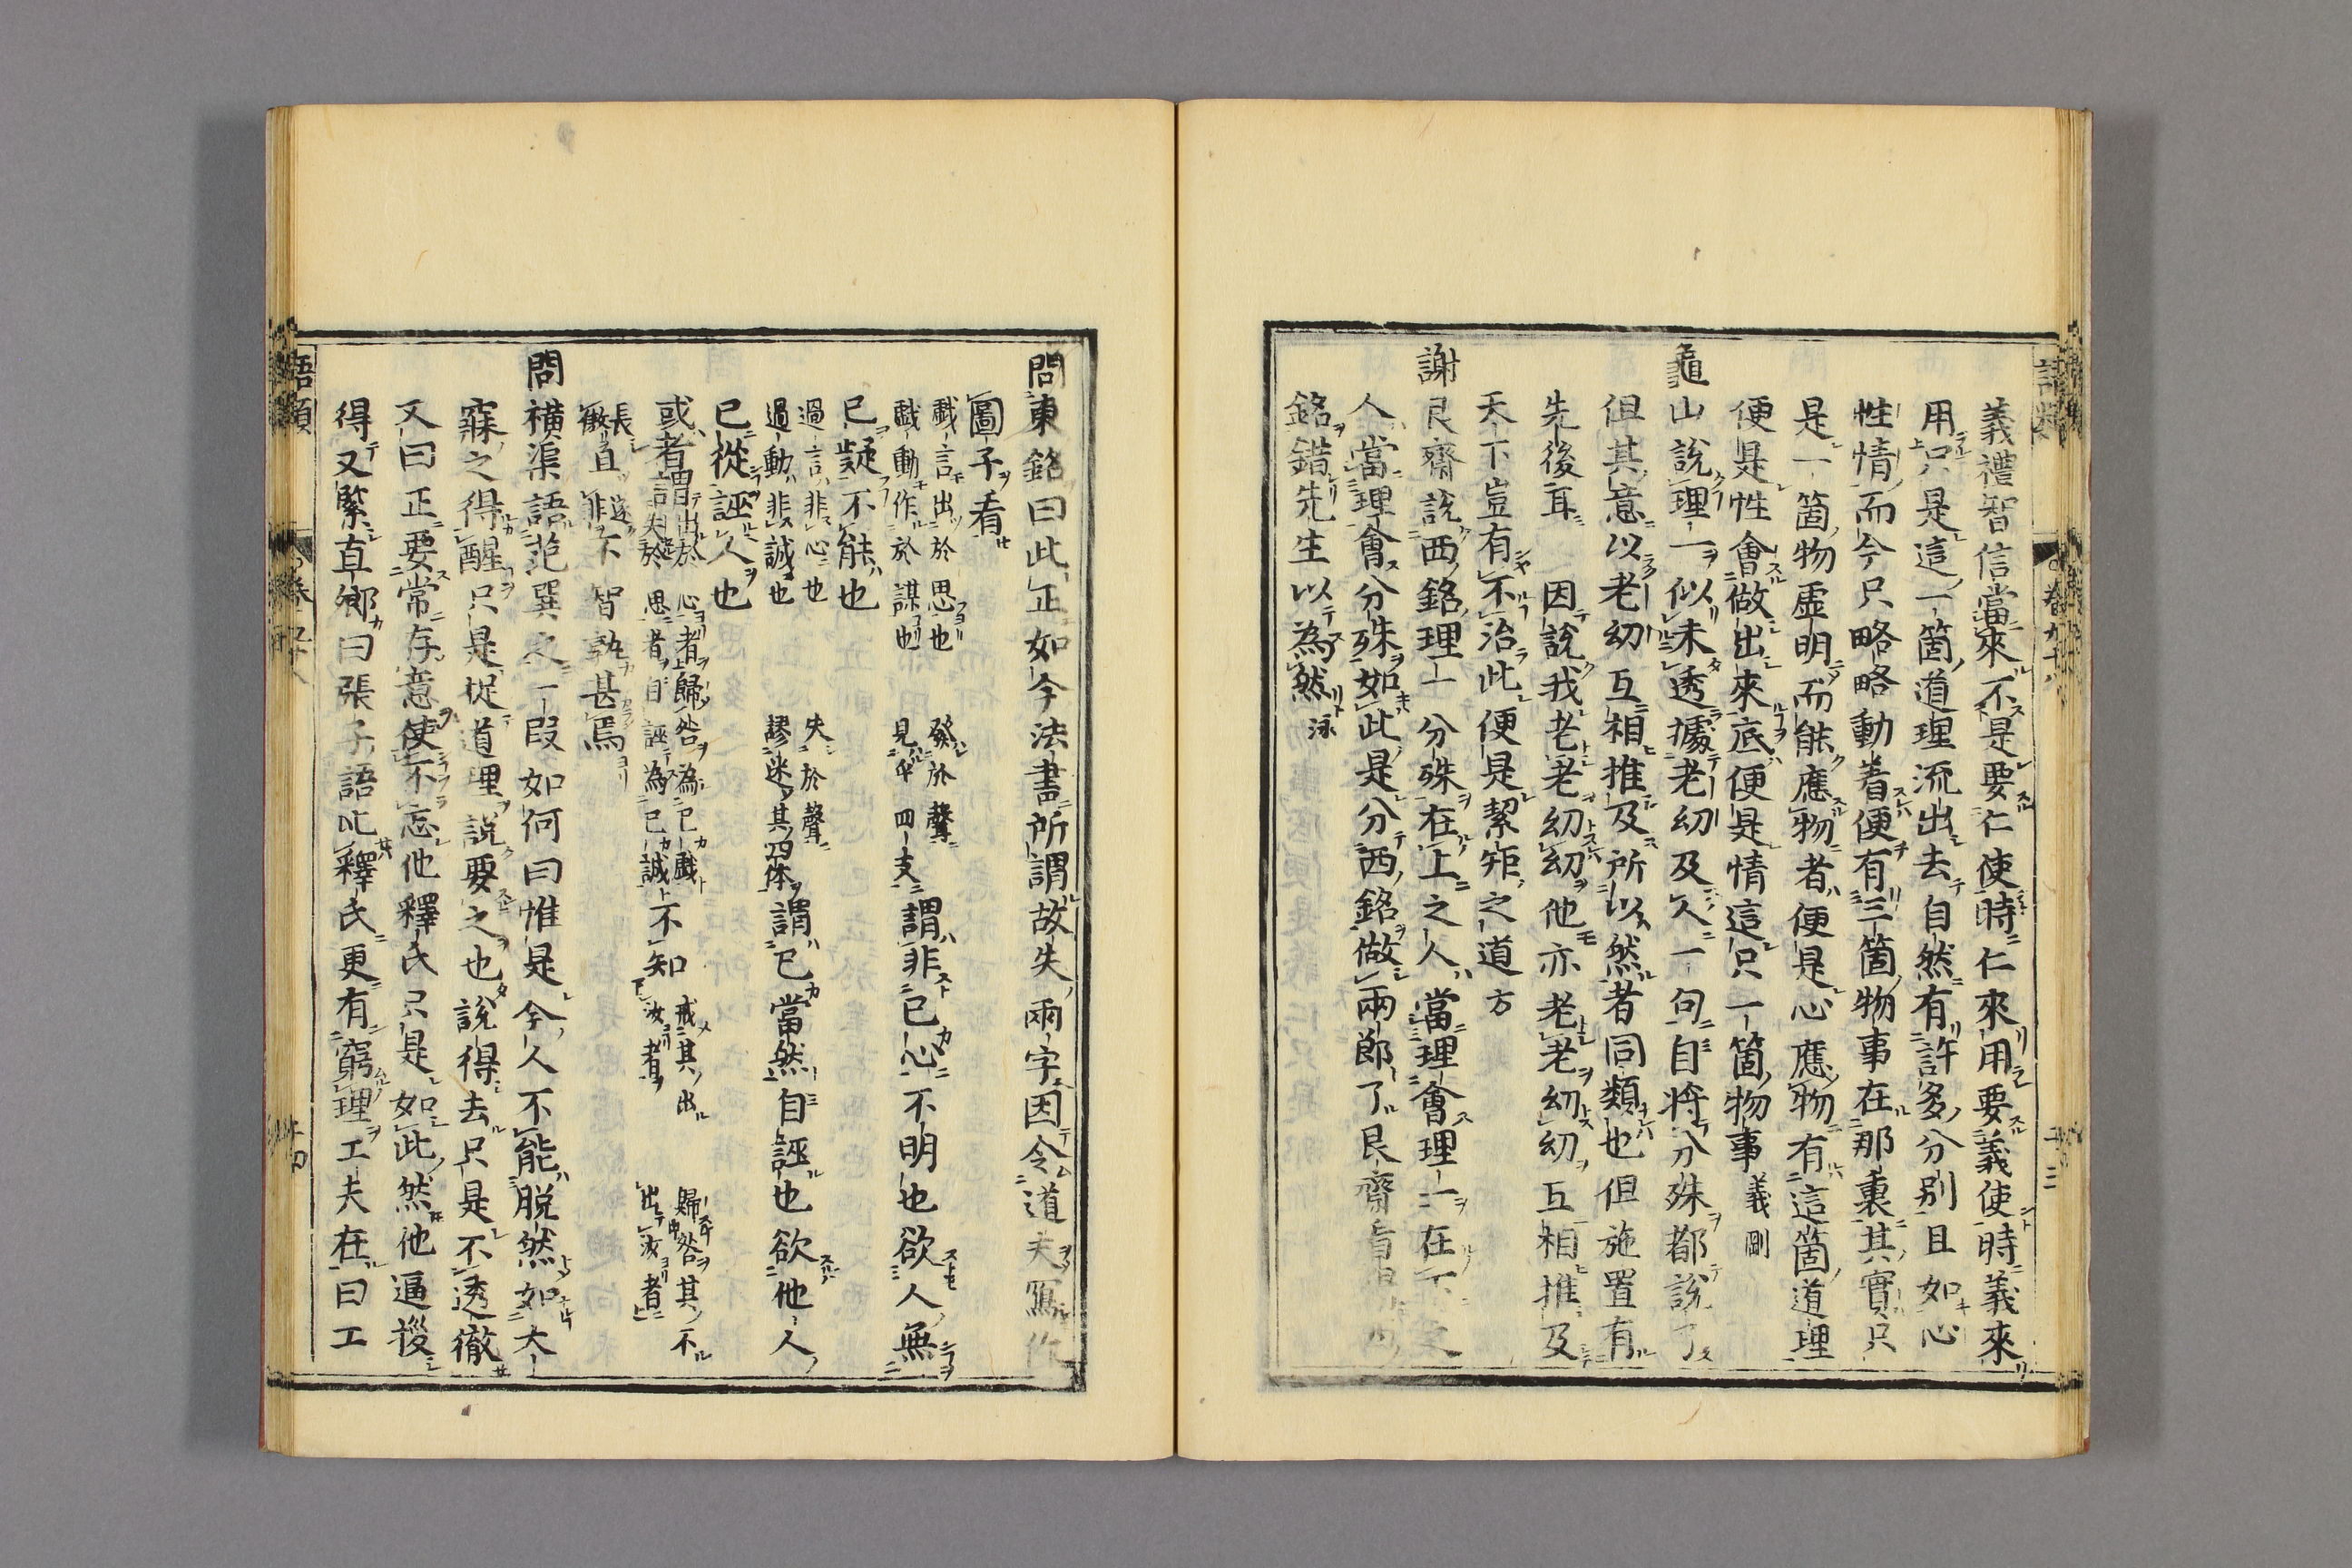 義禮智信當來不是要仁使時仁來用要義使時義來
用只是這一箇道理流出去自然有許多分別且如心
性情而今只略略動着便有三箇物事在那裏其實只
是一箇物虛明而能應物者便是心應物有這箇道理
便是性會做出來底便是情這只一箇物事 義剛
龜山說理一似未透據老幼及人一句自將分殊都說了
但其意以老幼互相推及所以然者同類也但施置有
先後耳 因說我老老幼幼他亦老老幼幼互相推及
天下豈有不治此便是絜矩之道 方
謝艮齋說西銘理一分殊在上之人當理會理一在下之
人當理會分殊如此是分西銘做兩郎了艮齋看
銘錯先生以為然 泳
問東銘曰此正如今法書所謂故失兩字因令道夫寫作
圖子看
戱言出於思也
戱動作於謀也
發於聲
見乎四支
謂非己心不明也欲人無
己疑不能也
過言非心也
過動非誠也
失於聲
謬迷其四体
謂己當然自誣也欲他人
己從誣人也
或者謂出於心者歸咎為己戱
失於思者自誣為己誠
不知
戒其出汝者
歸咎其不出汝者
長傲且遂非不智孰甚焉
問橫渠語范巽之一段如何曰惟是今人不能脫然如大
寐之得醒只是捉道理說要之也說得去只是不透徹
又曰正要常存意使不忘他釋氏只是如此然他逼拶
得又緊直卿曰張子語比釋氏更有窮理工夫在曰工